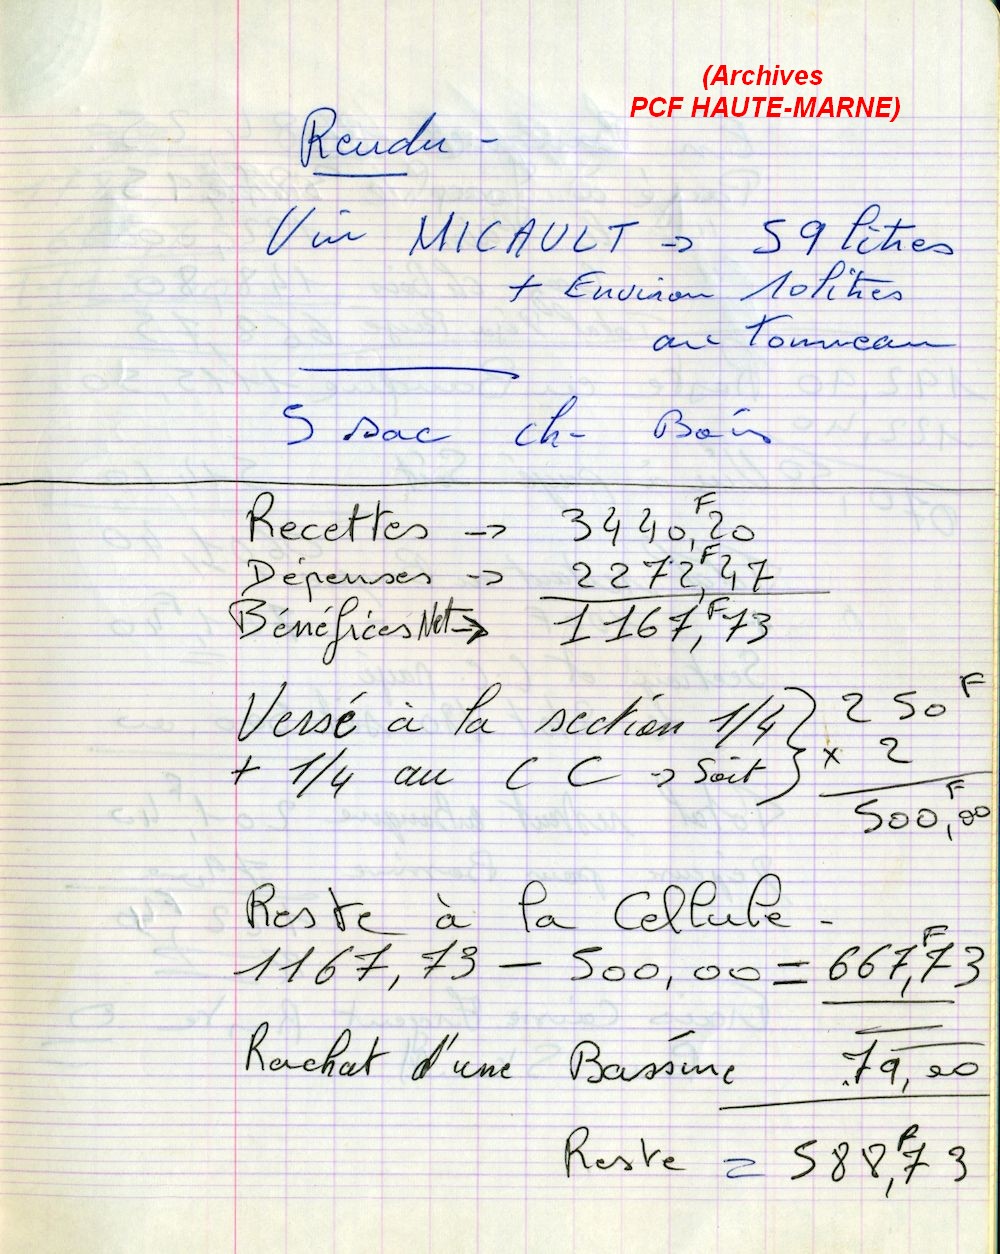 (Archives
PCF HAUTE-MARNE)
Rendu -
Vin MICAULT → 59 litres
+ Environ 10 litres
au tonneau
5 sac ch- Bois
Recettes → 3440,F20
Dépenses → 2272,F47
Bénéfices Net → 1167,F73
Versé à la section 1/4 } 250F
+ 1/4 au CC → Soit } x 2
500,F00
Reste à la Cellule -
1167,73 - 500,00 = 667,F73
Rachat d'une Bassine 79,00
Reste = 588,F73